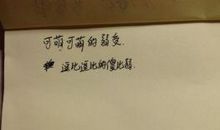 可萌可萌的弱受.
逗比逗比的傻比弱.